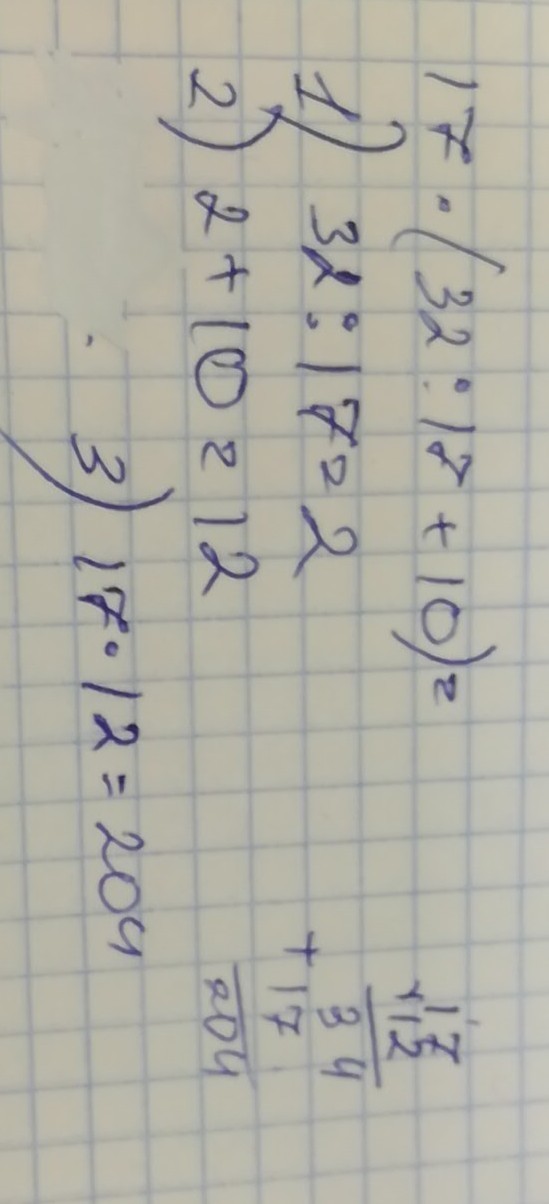 17 · (32 : 17 + 10) =
1) 32 : 17 = 2
2) 2 + 10 = 12
3) 17 · 12 = 204
17
×12
34
+
17
204